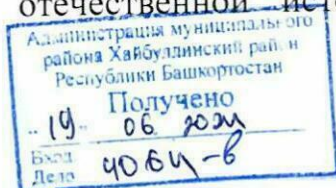 отечественной ист
Администрация муниципального
района Хайбуллинский район
Республики Башкортостан
Получено
"19" 06
Вход
Дело